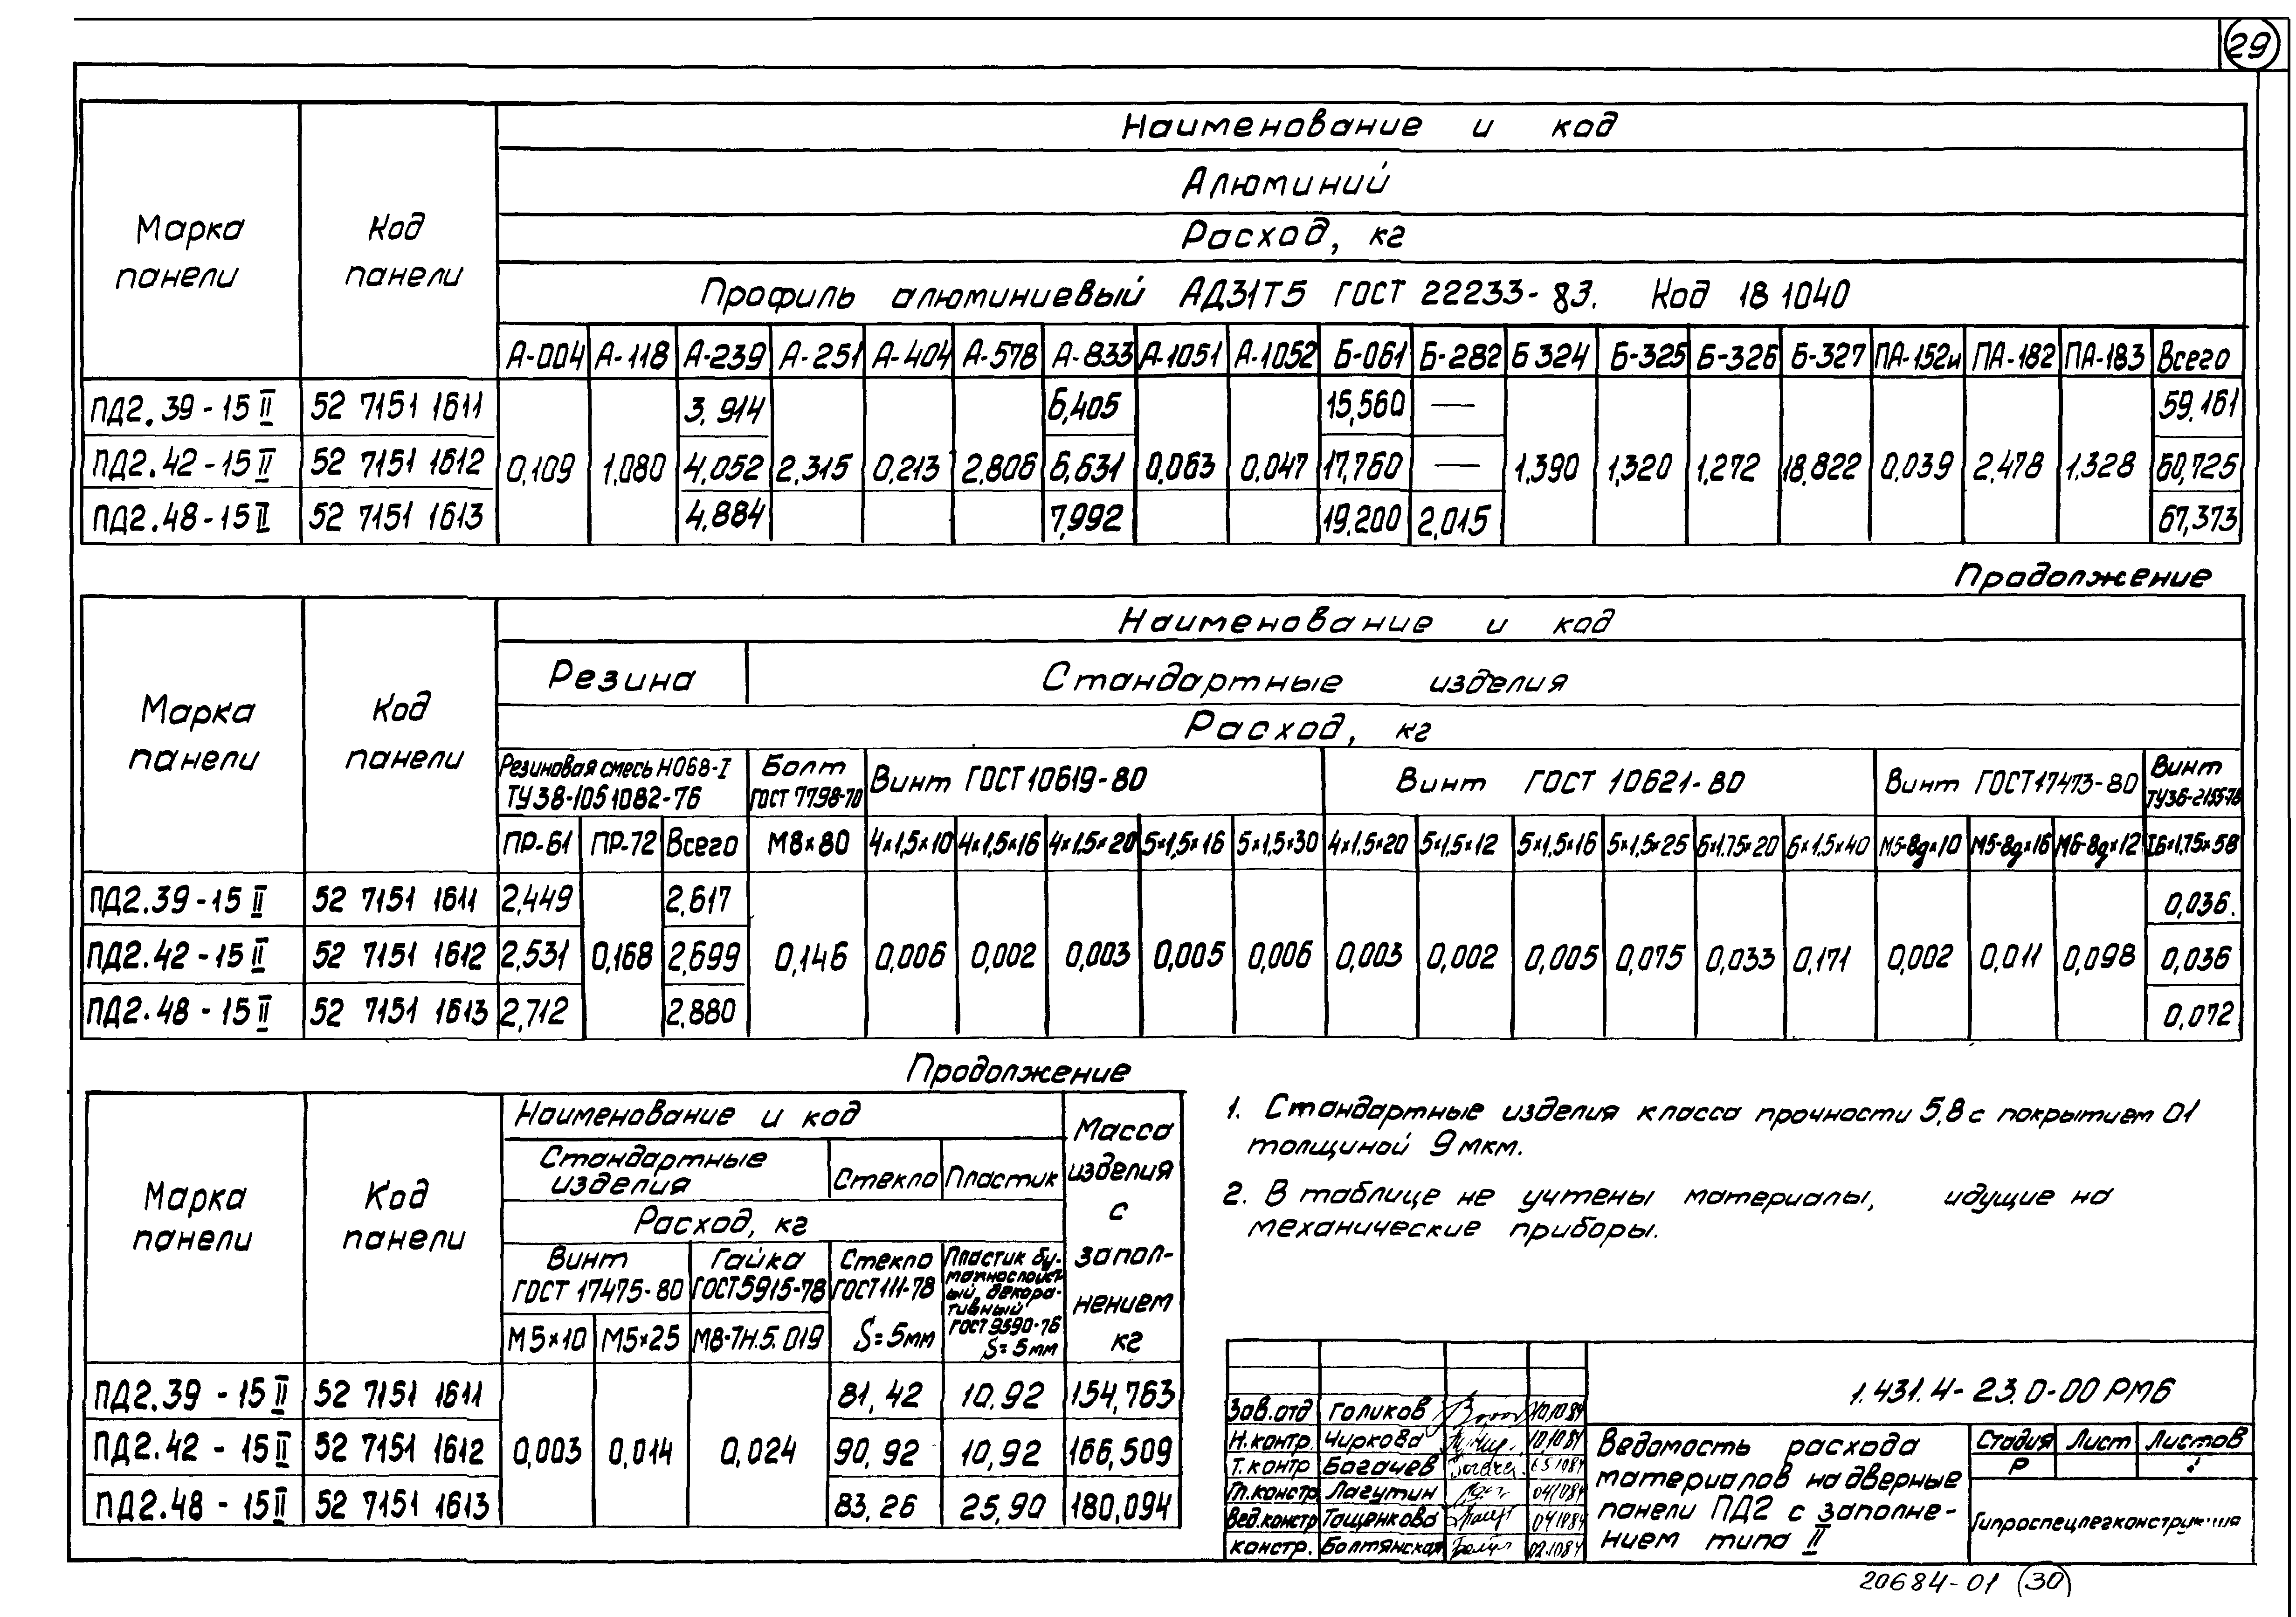 29
Наименование и код
Алюминий
Расход, кг
Марка панели
Код панели
Профиль алюминиевый АД31Т5 ГОСТ 22233-83. Код 18 1040
А-004 А-118 А-239 А-251 А-404 А-578 А-833 А-1051 А-1052 Б-061 Б-282 Б 324 Б-325 Б-326 Б-327 ПА-152и ПА-182 ПА-183 Всего
ПД2.39-15 II 52 7151 1611 3,914 6,405 15,560 — 59,161
ПД2.42-15 II 52 7151 1612 0,109 1,080 4,052 2,315 0,213 2,806 6,631 0,063 0,047 17,760 — 1,390 1,320 1,272 18,822 0,039 2,478 1,328 60,725
ПД2.48-15 II 52 7151 1613 4,884 7,992 19,200 2,015 67,373
Продолжение
Наименование и код
Резина Стандартные изделия
Расход, кг
Марка панели
Код панели
Резиновая смесь НО68-I ТУ38-105 1082-76
Болт ГОСТ 7798-70
Винт ГОСТ 10619-80
Винт ГОСТ 10621-80
Винт ГОСТ 17473-80
Винт
ПР-61 ПР-72 Всего М8×80 4×1,5×10 4×1,5×16 4×1,5×20 5×1,5×16 5×1,5×30 4×1,5×20 5×1,5×12 5×1,5×16 5×1,5×25 6×1.75×20 6×1.5×40 М5-8g×10 М5-8g×16 М6-8g×12 I6×1.75×58
ПД2.39-15 II 52 7151 1611 2,449 2,617 0,036.
ПД2.42-15 II 52 7151 1612 2,531 0,168 2,699 0,146 0,006 0,002 0,003 0,005 0,006 0,003 0,002 0,005 0,075 0,033 0,171 0,002 0,011 0,098 0,036
ПД2.48-15 II 52 7151 1613 2,712 2,880 0,072
Продолжение
Марка панели
Код панели
Наименование и код
Стандартные изделия
Стекло Пластик
Расход, кг
Масса изделия с заполнением кг
Винт ГОСТ 17475-80
Гайка ГОСТ5915-78
Стекло ГОСТ111-78
Пластик бумажнослоистый декоративный ГОСТ 9590-76
М5×10 М5×25 М8-7Н.5.019 S=5мм S=5мм
ПД2.39-15 II 52 7151 1611 81,42 10,92 154,763
ПД2.42-15 II 52 7151 1612 0,003 0,014 0,024 90,92 10,92 166,509
ПД2.48-15 II 52 7151 1613 83,26 25,90 180,094
1. Стандартные изделия класса прочности 5,8 с покрытием 01
толщиной 9 мкм.
2. В таблице не учтены материалы, идущие на
механические приборы.
Зав.отд Голиков 10.10.84
Н.контр. Чиркова 10.10.84
Т.контр Богачев
Гл.констр Лагутин 04.10.84
Вед.констр Тащенкова 04.10.84
констр. Болтянская 02.10.84
1.431.4-23.0-00 РМ6
Ведомость расхода
материалов на дверные
панели ПД2 с заполне-
нием типа II
Стадия Лист Листов
Р
Гипроспецлегконструкция
20684-01 30